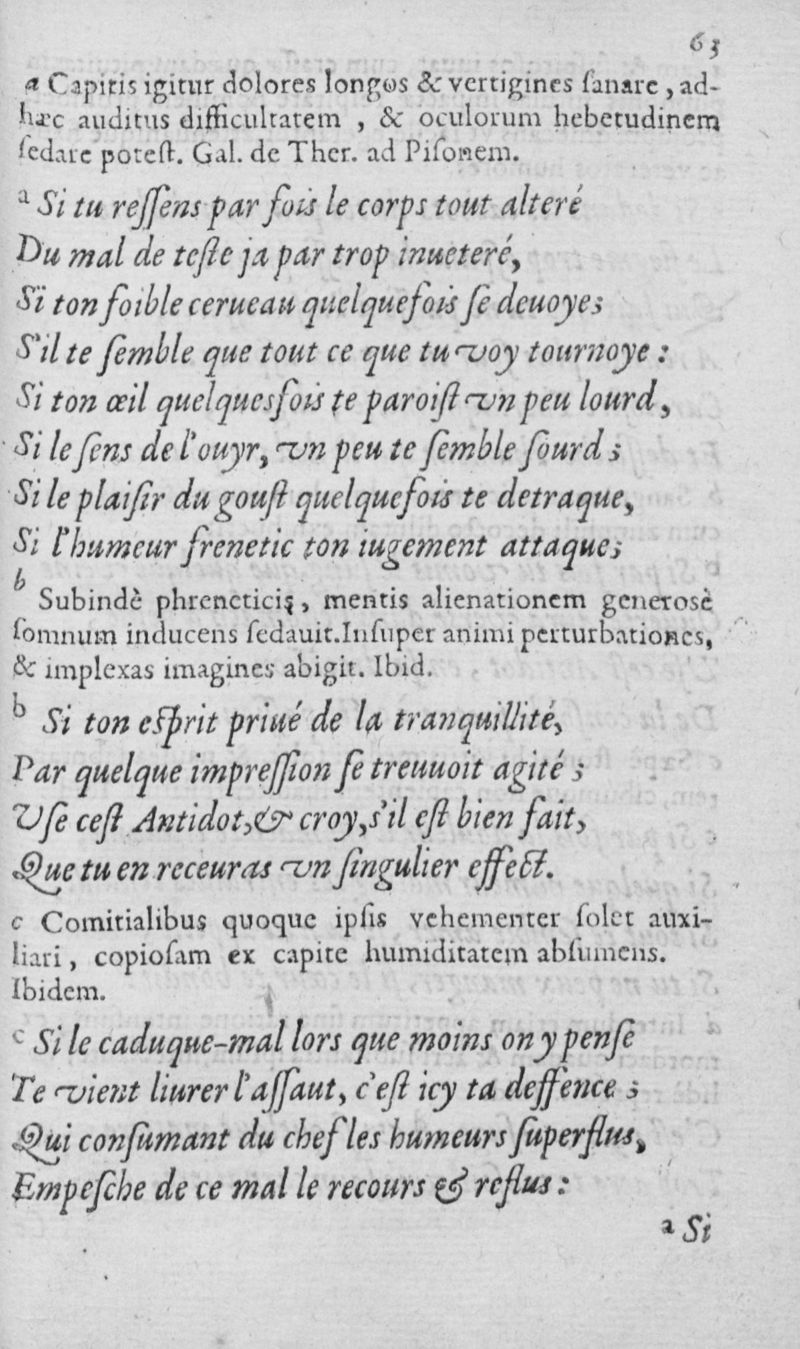 63
a Capitis igitur dolores longos & vertigines ſanare, ad-
hæc auditus difficultatem , & oculorum hebetudinem
ſedare poteſt. Gal. de Ther. ad Piſonem.
a Si tu reſſens par fois le corps tout alteré
Du mal de teſte ja par trop inueteré,
Si ton foible cerueau quelquefois ſe deuoye;
S'il te ſemble que tout ce que tu voy tournoye :
Si ton œil quelquesfois te paroiſt vn peu lourd,
Si le ſens de l'ouyr, vn peu te ſemble ſourd ;
Si le plaiſir du gouſt quelquefois te detraque,
Si l'humeur frenetic ton iugement attaque;
b
Subindè phreneticis, mentis alienationem generosè
ſomnum inducens ſedauit. Inſuper animi perturbationes,
& implexas imagines abigit. Ibid.
b Si ton eſprit priué de la tranquillité,
Par quelque impreſſion ſe treuuoit agité ;
Vſe ceſt Antidot, & croy, s'il eſt bien fait,
Que tu en receuras vn ſingulier effect.
c Comitialibus quoque ipſis vehementer ſolet auxi-
liari, copioſam ex capite humiditatem abſumens.
Ibidem.
c Si le caduque-mal lors que moins on y penſe
Te vient liurer l'aſſaut, c'eſt icy ta deffence ;
Qui conſumant du chef les humeurs ſuperflus,
Empeſche de ce mal le recours & reflus :
a Si